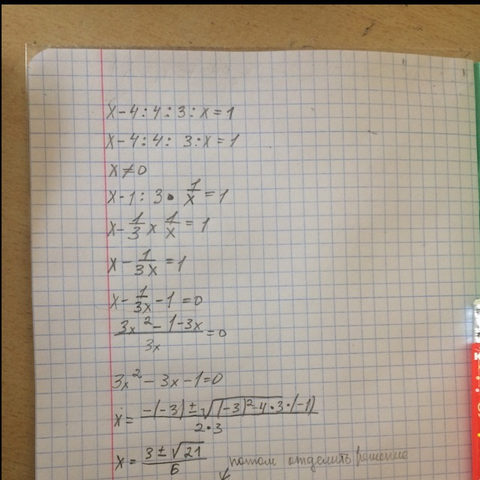 x-4:4:3:x=1
x-4:4: 3:x=1
x≠0
x-1:3•1/x=1
x-1/3 x 1/x=1
x-1/3x=1
x-1/3x-1=0
3x²-1-3x/3x=0
3x²-3x-1=0
x=-(-3)±√(-3)²-4•3•(-1)/2•3
x=3±√21/6
потом отделить решение